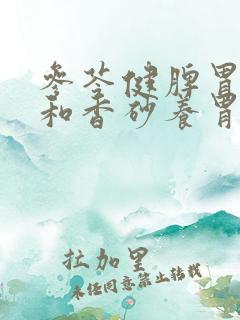 参苓健脾胃
和香砂养胃
拉加里
未经同意禁止转载